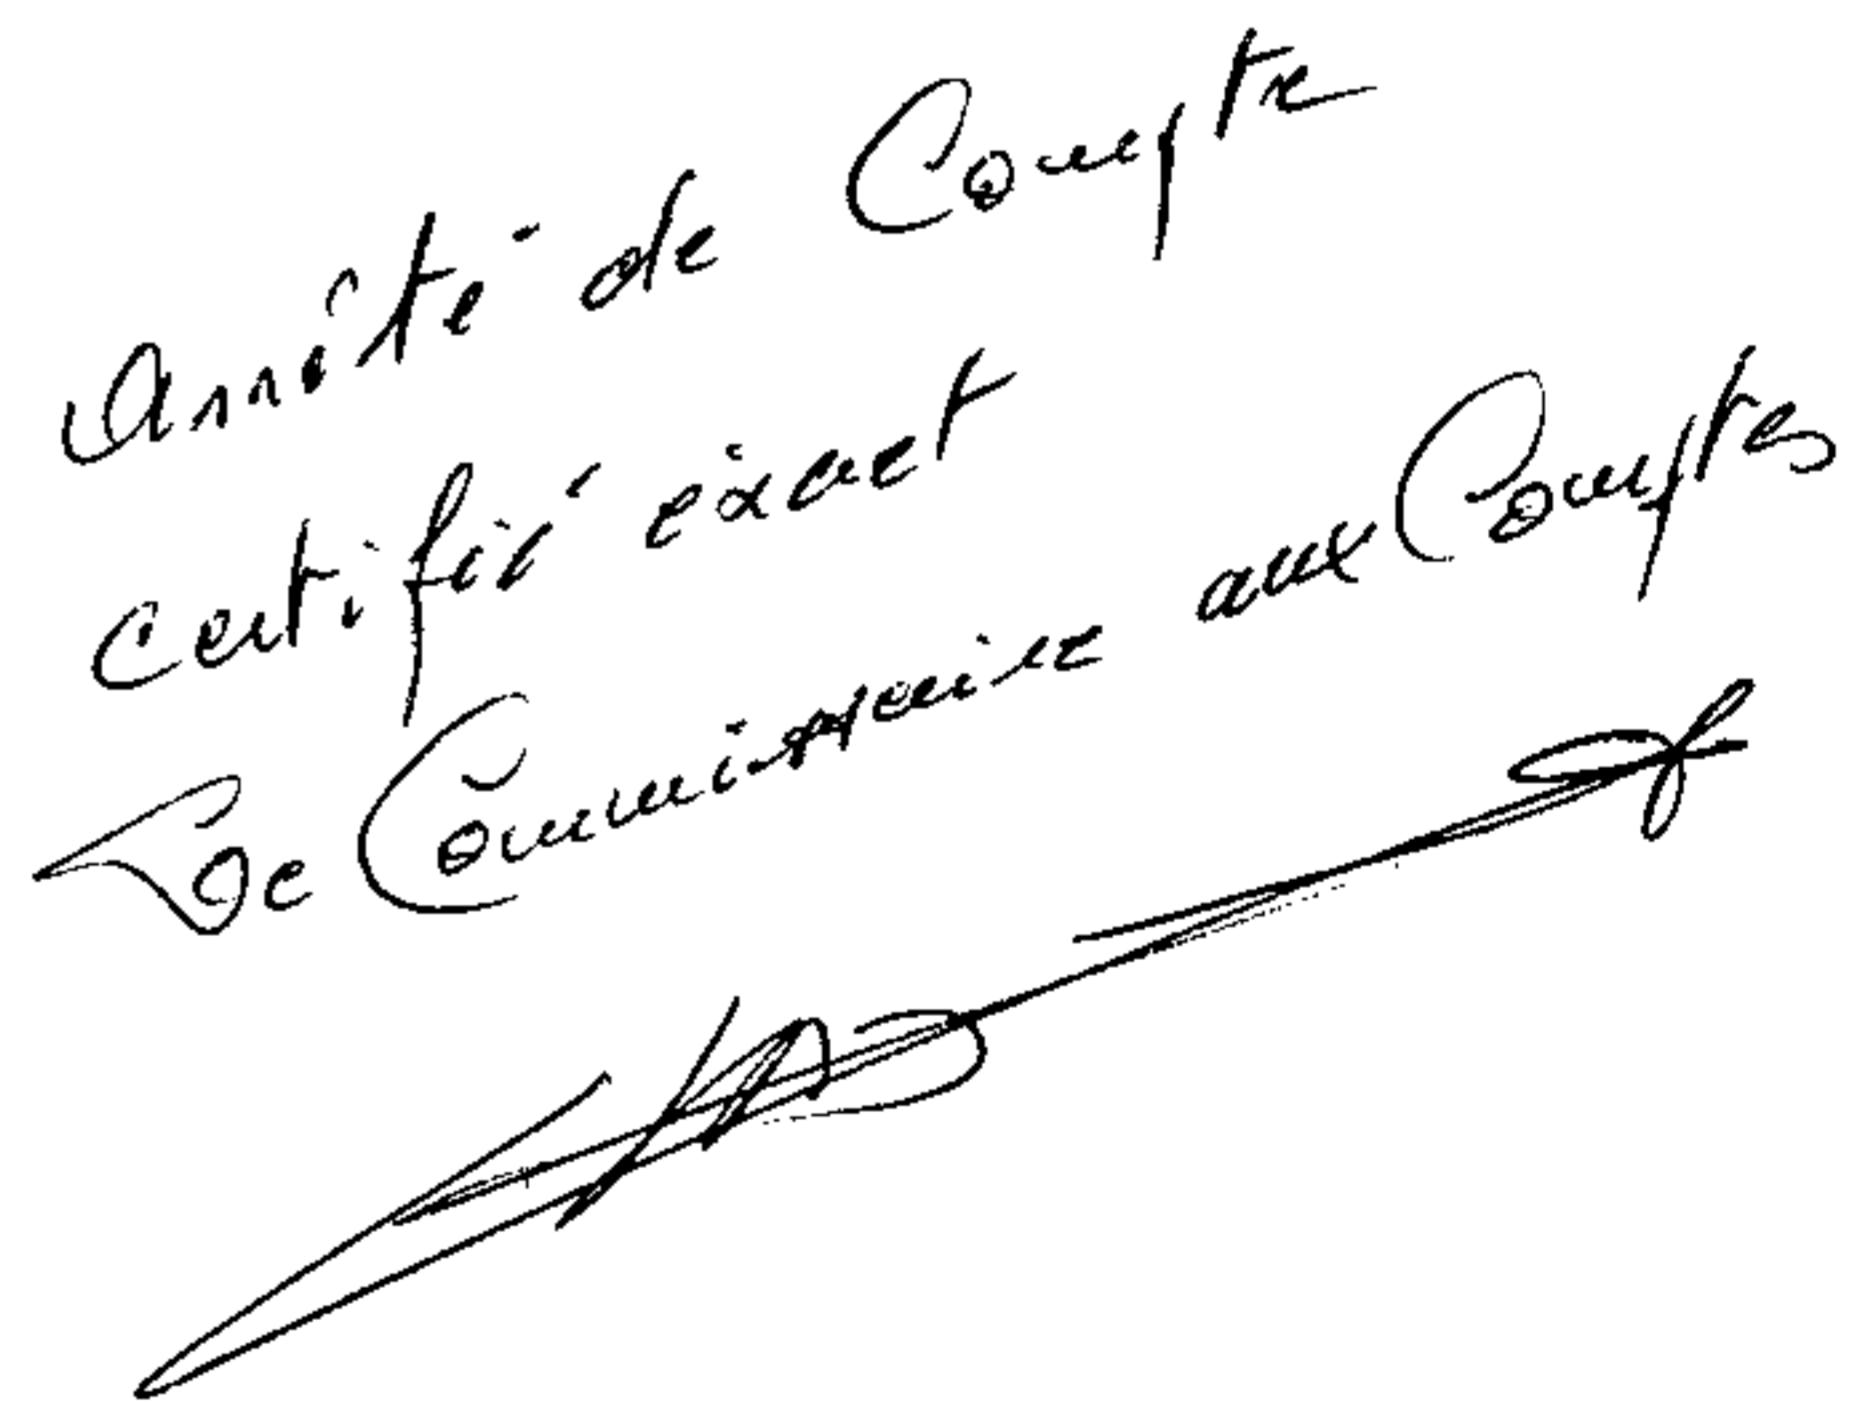 Arrêté de Compte
certifié exact
Le Commissaire aux Comptes